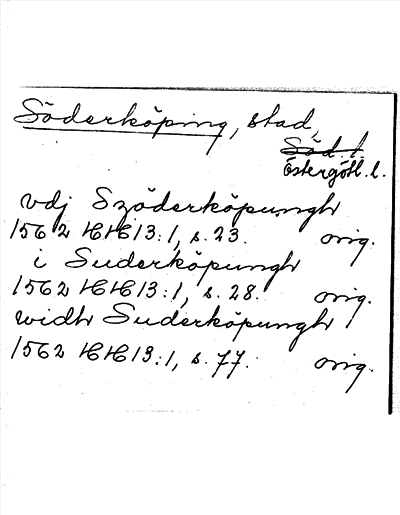 Söderköping, stad,
Söd. l.
Östergötl. l.
vdj Szöderköpungh
1562 HH13:1, s. 23. orig.
i Suderköpungh
1562 HH13:1, s. 28. orig.
widh Suderköpungh
1562 HH13:1, s. 77. orig.